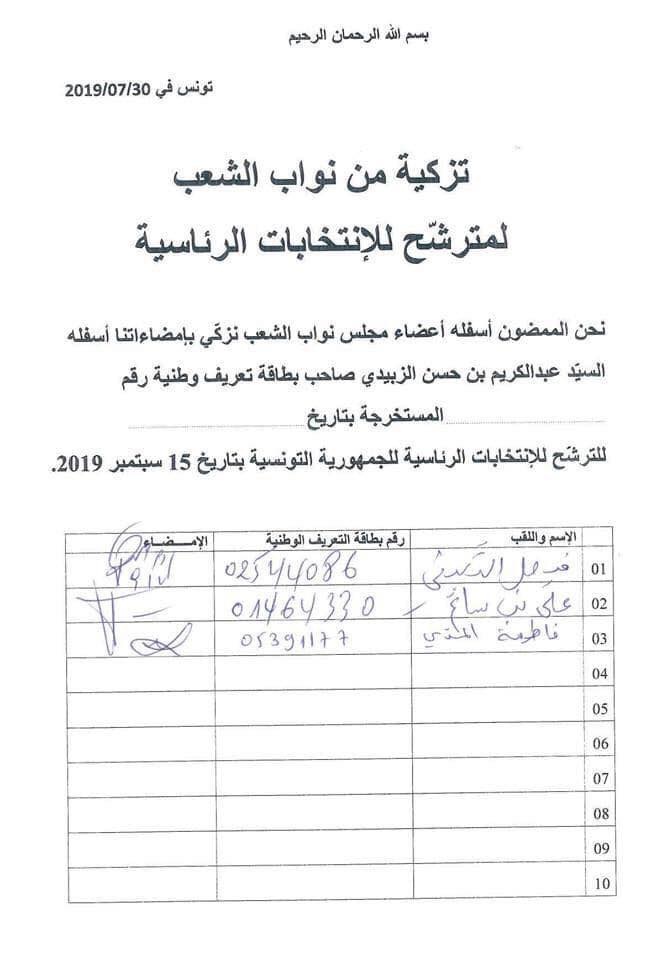 بسم الله الرحمان الرحيم
تونس في 2019/07/30
تزكية من نواب الشعب
لمترشّح للإنتخابات الرئاسية
نحن الممضون أسفله أعضاء مجلس نواب الشعب نزكّي بإمضاءاتنا أسفله
السيّد عبدالكريم بن حسن الزبيدي صاحب بطاقة تعريف وطنية رقم
المستخرجة بتاريخ
للترشّح للإنتخابات الرئاسية للجمهورية التونسية بتاريخ 15 سبتمبر 2019.
الإسم واللقب رقم بطاقة التعريف الوطنية الإمـــضــاء
01 فيصل 02544086
02 علي بن سالم 01464330
03 فاطمة المسدي 05391177
04
05
06
07
08
09
10